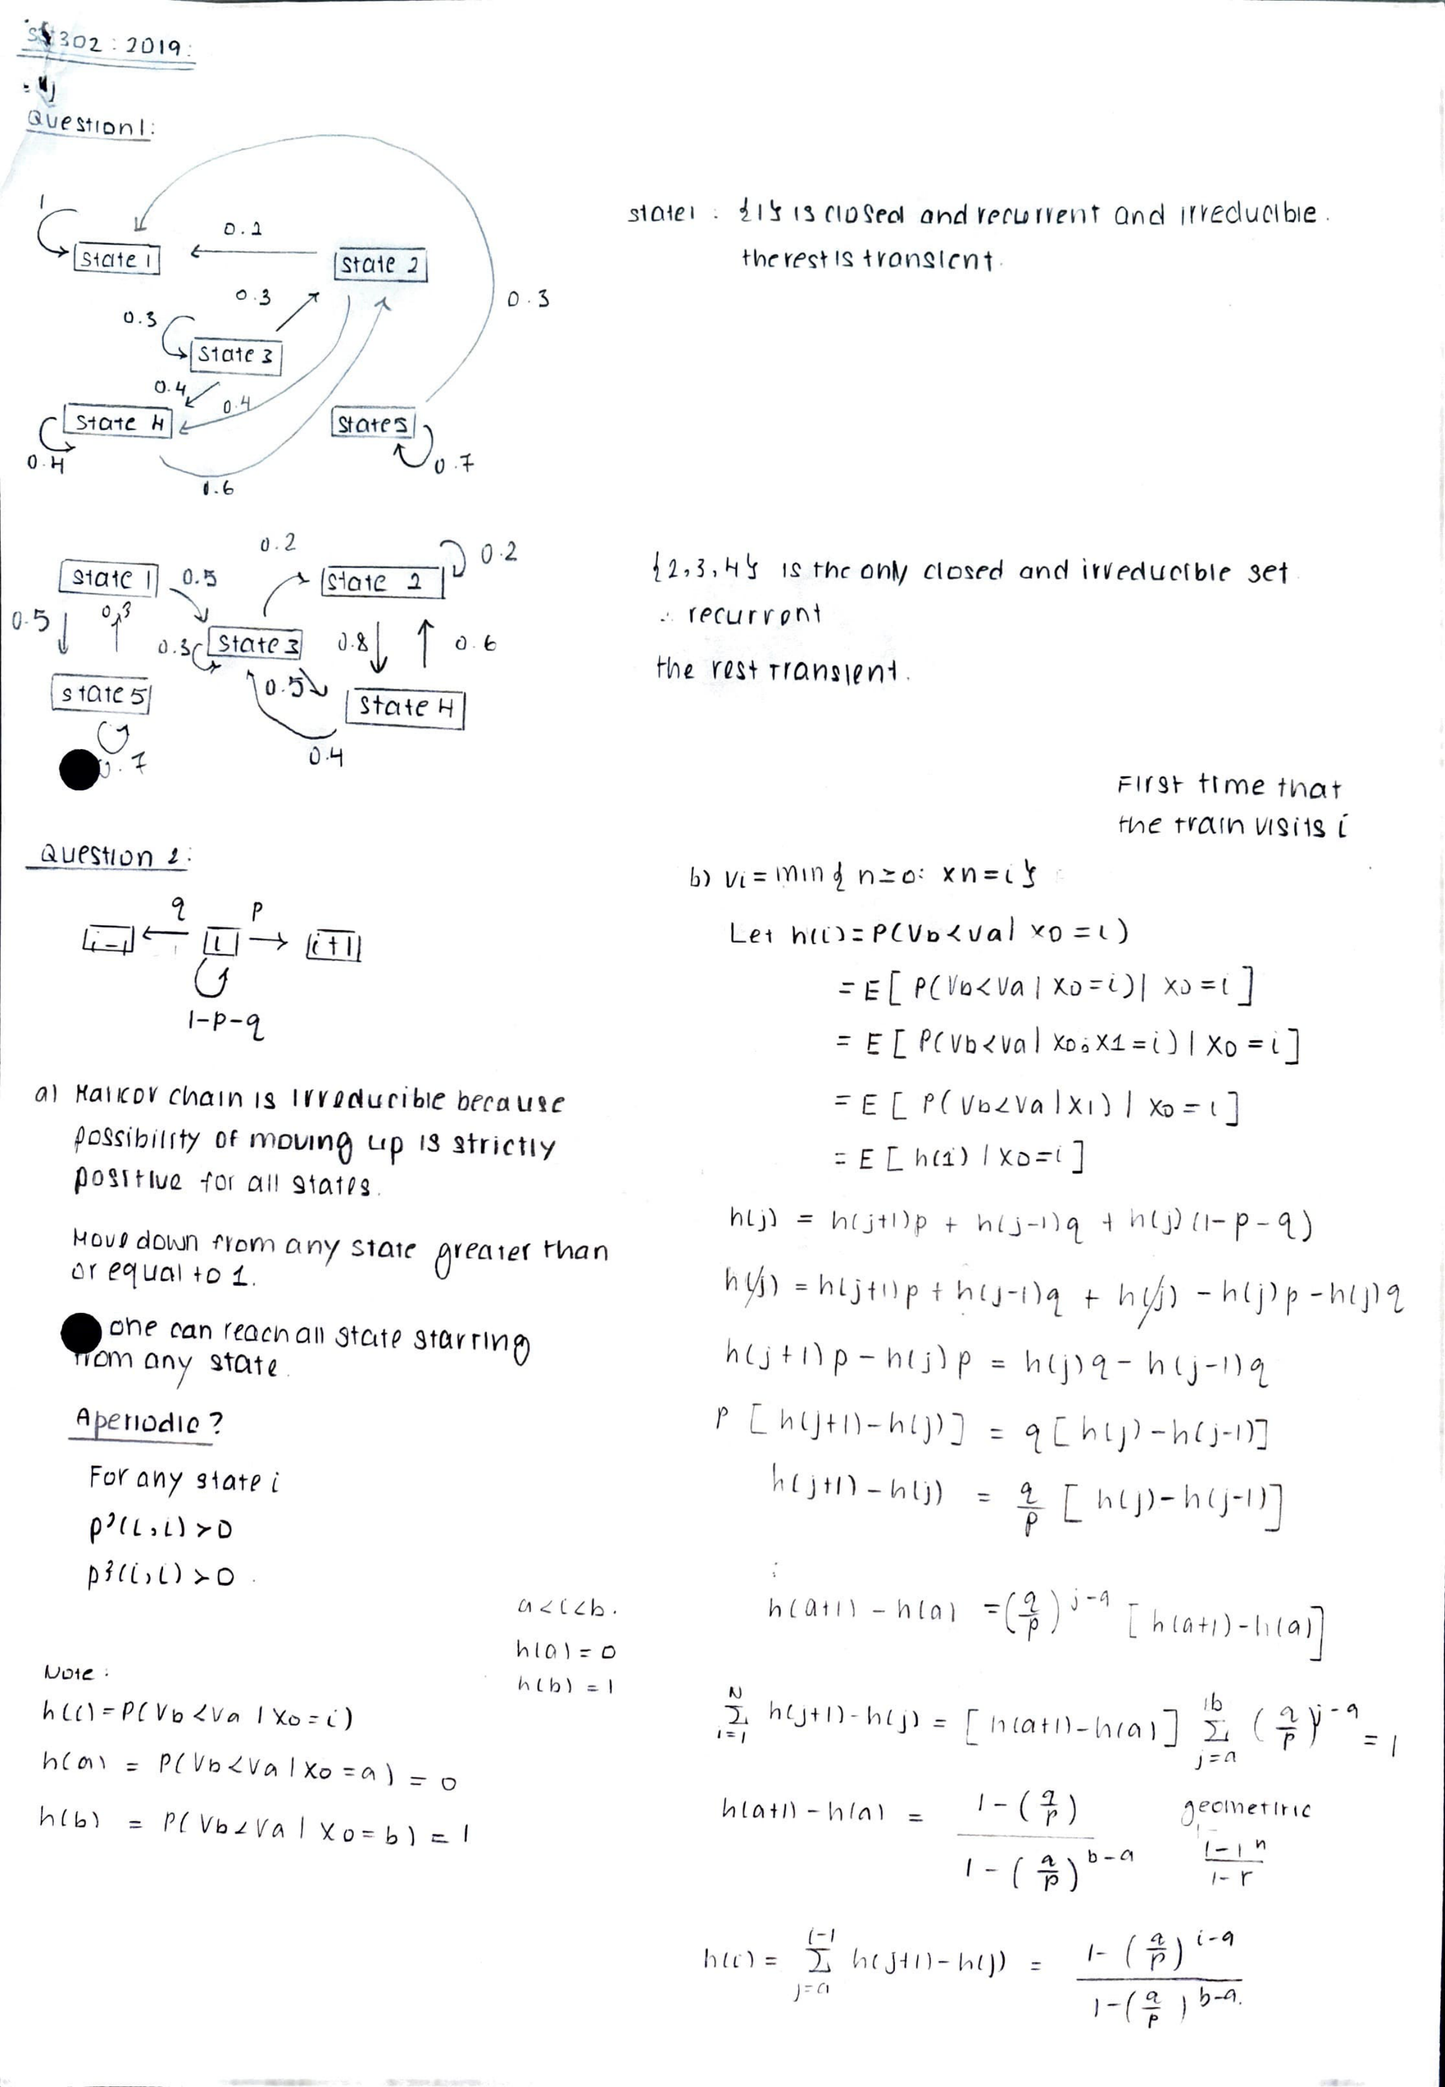 302 : 2019 :
Question 1:
1
State 1
0.2
State 2
0.3
0.3
0.3
State 3
0.4
0.4
State 4
State 5
0.4
0.7
0.6
state 1 : {1} is closed and recurrent and irreducible.
the rest is transient.
0.2
0.2
State 1
0.5
State 2
0.5
0.3
0.3
State 3
0.8
0.6
State 5
0.5
State 4
0.7
0.4
{2,3,4} is the only closed and irreducible set
∴ recurrent
the rest transient.
Question 2:
q
p
i-1
i
i+1
1-p-q
a) Markov chain is irreducible because
possibility of moving up is strictly
positive for all states.
Move down from any state greater than
or equal to 1.
one can reach all state starting
from any state.
Aperiodic?
For any state i
p²(i,i)>0
p³(i,i)>0
Note :
h(i)=P(Vb<Va | X0=i)
h(a) = P(Vb<Va | X0=a) = 0
h(b) = P(Vb<Va | X0=b) = 1
a<i<b.
h(a)=0
h(b)=1
First time that
the train visits i
b) Vi = min{ n≥0: xn=i}
Let h(i)=P(Vb<Va | X0=i)
= E[ P(Vb<Va | X0=i) | X0=i]
= E[ P(Vb<Va | X0, X1=i) | X0=i]
= E[ P(Vb<Va | X1) | X0=i]
= E[ h(1) | X0=i]
h(j) = h(j+1)p + h(j-1)q + h(j)(1-p-q)
h(j) = h(j+1)p + h(j-1)q + h(j) - h(j)p - h(j)q
h(j+1)p - h(j)p = h(j)q - h(j-1)q
p [h(j+1)-h(j)] = q[h(j)-h(j-1)]
h(j+1)-h(j) = q/p [h(j)-h(j-1)]
⋮
h(a+1) - h(a) = (q/p)^j-a [h(a+1)-h(a)]
N Σ i=1 h(j+1)-h(j) = [h(a+1)-h(a)] b Σ j=a (q/p)^j-a = 1
h(a+1)-h(a) = 1-(q/p) / 1-(q/p)^b-a
geometric
1-r^n / 1-r
h(i) = i-1 Σ j=a h(j+1)-h(j) = 1-(q/p)^i-a / 1-(q/p)^b-a.